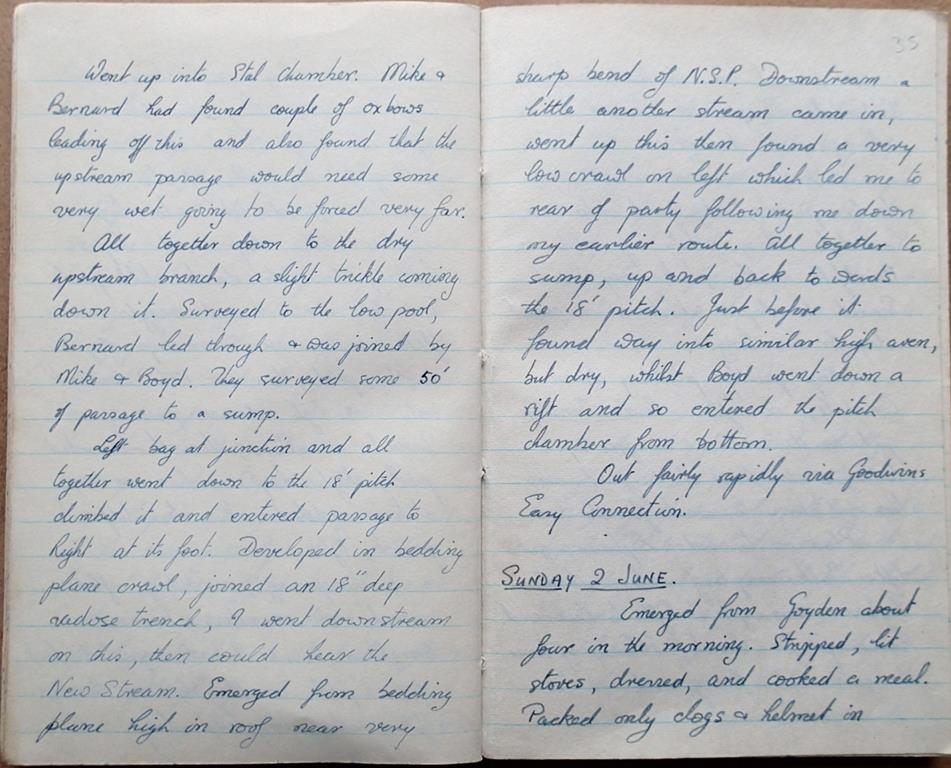 Went up into Stal chamber. Mike &
Bernard had found couple of oxbows
leading off this and also found that the
upstream passage would need some
very wet going to be forced very far.
All together down to the dry
upstream branch, a slight trickle coming
down it. Surveyed to the low pool,
Bernard led through & was joined by
Mike & Boyd. They surveyed some 50'
of passage to a sump.
Left bag at junction and all
together went down to the 18' pitch
climbed it and entered passage to
Right at its foot. Developed in bedding
plane crawl, joined an 18" deep
vadose trench, I went downstream
on this, then could hear the
New Stream. Emerged from bedding
plane high in roof near very
35
sharp bend of N.S.P. Downstream a
little another stream came in,
went up this then found a very
low crawl on left which led me to
rear of party following me down
my earlier route. All together to
sump, up and back towards
the 18' pitch. Just before it
found way into similar high aven,
but dry, whilst Boyd went down a
rift and so entered the pitch
chamber from bottom.
Out fairly rapidly via Goodwins
Easy Connection.
SUNDAY 2 JUNE.
Emerged from Goyden about
four in the morning. Stripped, lit
stoves, dressed, and cooked a meal.
Packed only clogs & helmet in